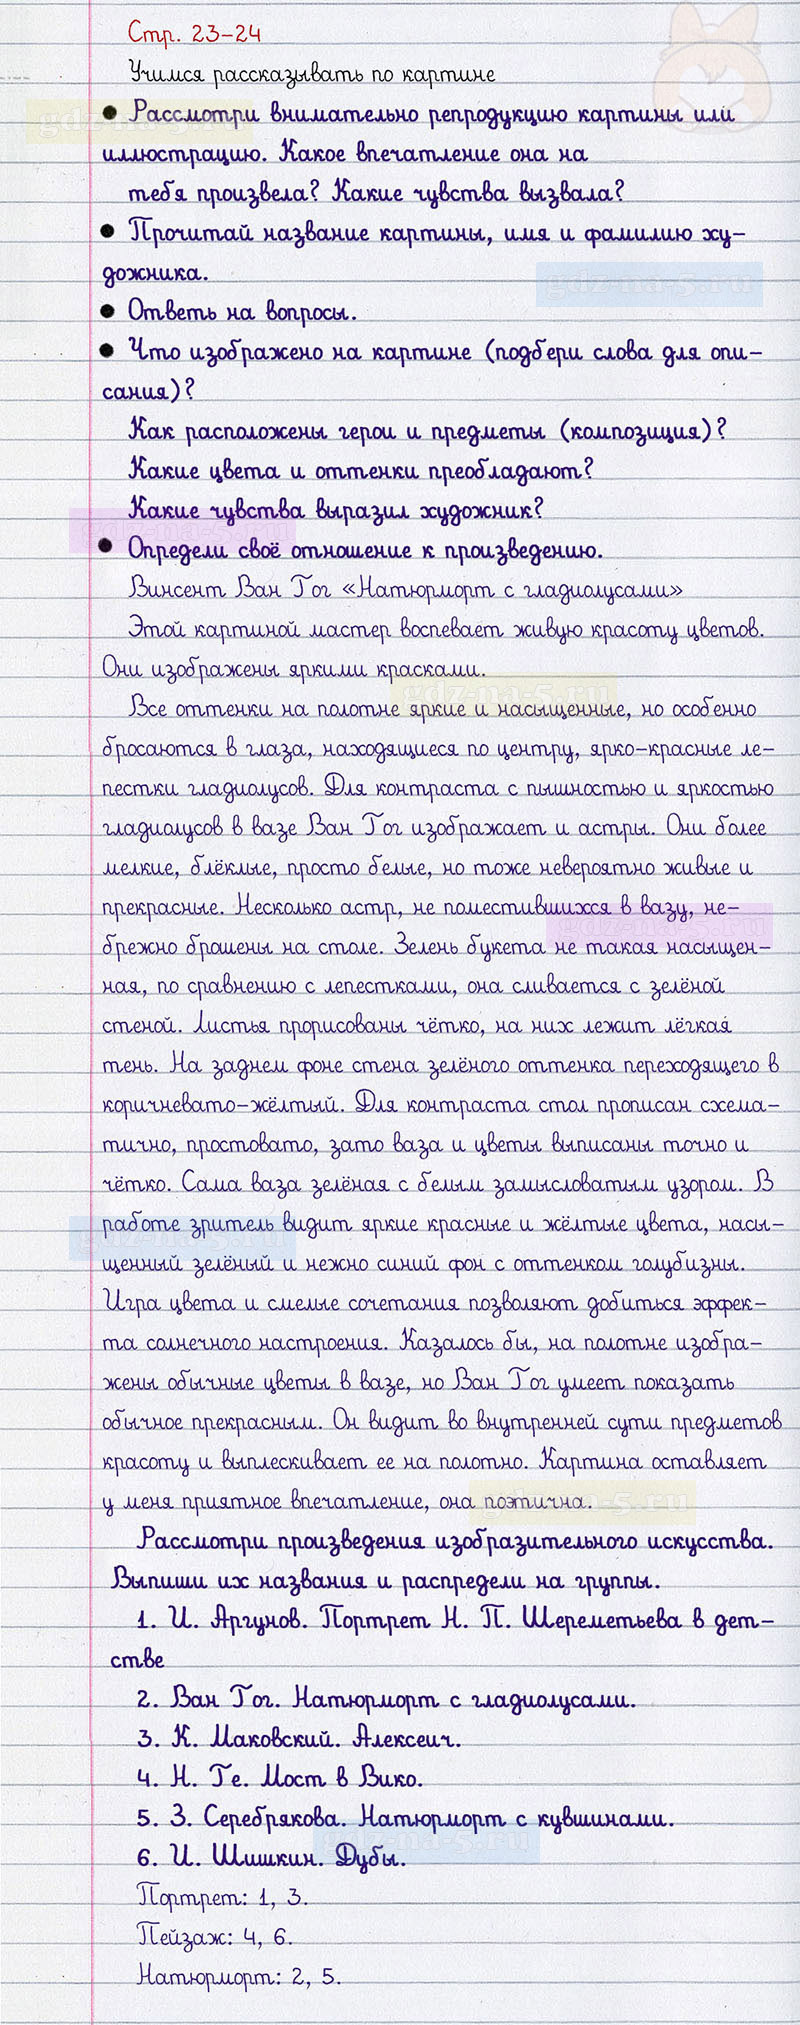 Стр. 23-24
Учимся рассказывать по картине
● Рассмотри внимательно репродукцию картины или
иллюстрацию. Какое впечатление она на
тебя произвела? Какие чувства вызвала?
● Прочитай название картины, имя и фамилию ху-
дожника.
gdz-na-5.ru
● Ответь на вопросы.
● Что изображено на картине (подбери слова для опи-
сания)?
Как расположены герои и предметы (композиция)?
Какие цвета и оттенки преобладают?
Какие чувства выразил художник?
gdz-na-5.ru
● Определи своё отношение к произведению.
Винсент Ван Гог «Натюрморт с гладиолусами»
Этой картиной мастер воспевает живую красоту цветов.
Они изображены яркими красками.
gdz-na-5.ru
Все оттенки на полотне яркие и насыщенные, но особенно
бросаются в глаза, находящиеся по центру, ярко-красные ле-
пестки гладиолусов. Для контраста с пышностью и яркостью
гладиолусов в вазе Ван Гог изображает и астры. Они более
мелкие, блёклые, просто белые, но тоже невероятно живые и
прекрасные. Несколько астр, не поместившихся в вазу, не-
gdz-na-5.ru
брежно брошены на столе. Зелень букета не такая насыщен-
ная, по сравнению с лепестками, она сливается с зелёной
стеной. Листья прорисованы чётко, на них лежит лёгкая
тень. На заднем фоне стена зелёного оттенка переходящего в
коричневато-жёлтый. Для контраста стол прописан схема-
тично, простовато, зато ваза и цветы выписаны точно и
чётко. Сама ваза зелёная с белым замысловатым узором. В
работе зритель видит яркие красные и жёлтые цвета, насы-
gdz-na-5.ru
щенный зелёный и нежно синий фон с оттенком голубизны.
Игра цвета и смелые сочетания позволяют добиться эффек-
та солнечного настроения. Казалось бы, на полотне изобра-
жены обычные цветы в вазе, но Ван Гог умеет показать
обычное прекрасным. Он видит во внутренней сути предметов
красоту и выплескивает ее на полотно. Картина оставляет
у меня приятное впечатление, она поэтична.
gdz-na-5.ru
Рассмотри произведения изобразительного искусства.
Выпиши их названия и распредели на группы.
1. И. Аргунов. Портрет Н. П. Шереметьева в дет-
стве
2. Ван Гог. Натюрморт с гладиолусами.
3. К. Маковский. Алексеич.
4. Н. Ге. Мост в Вико.
5. З. Серебрякова. Натюрморт с кувшинами.
gdz-na-5.ru
6. И. Шишкин. Дубы.
Портрет: 1, 3.
Пейзаж: 4, 6.
Натюрморт: 2, 5.